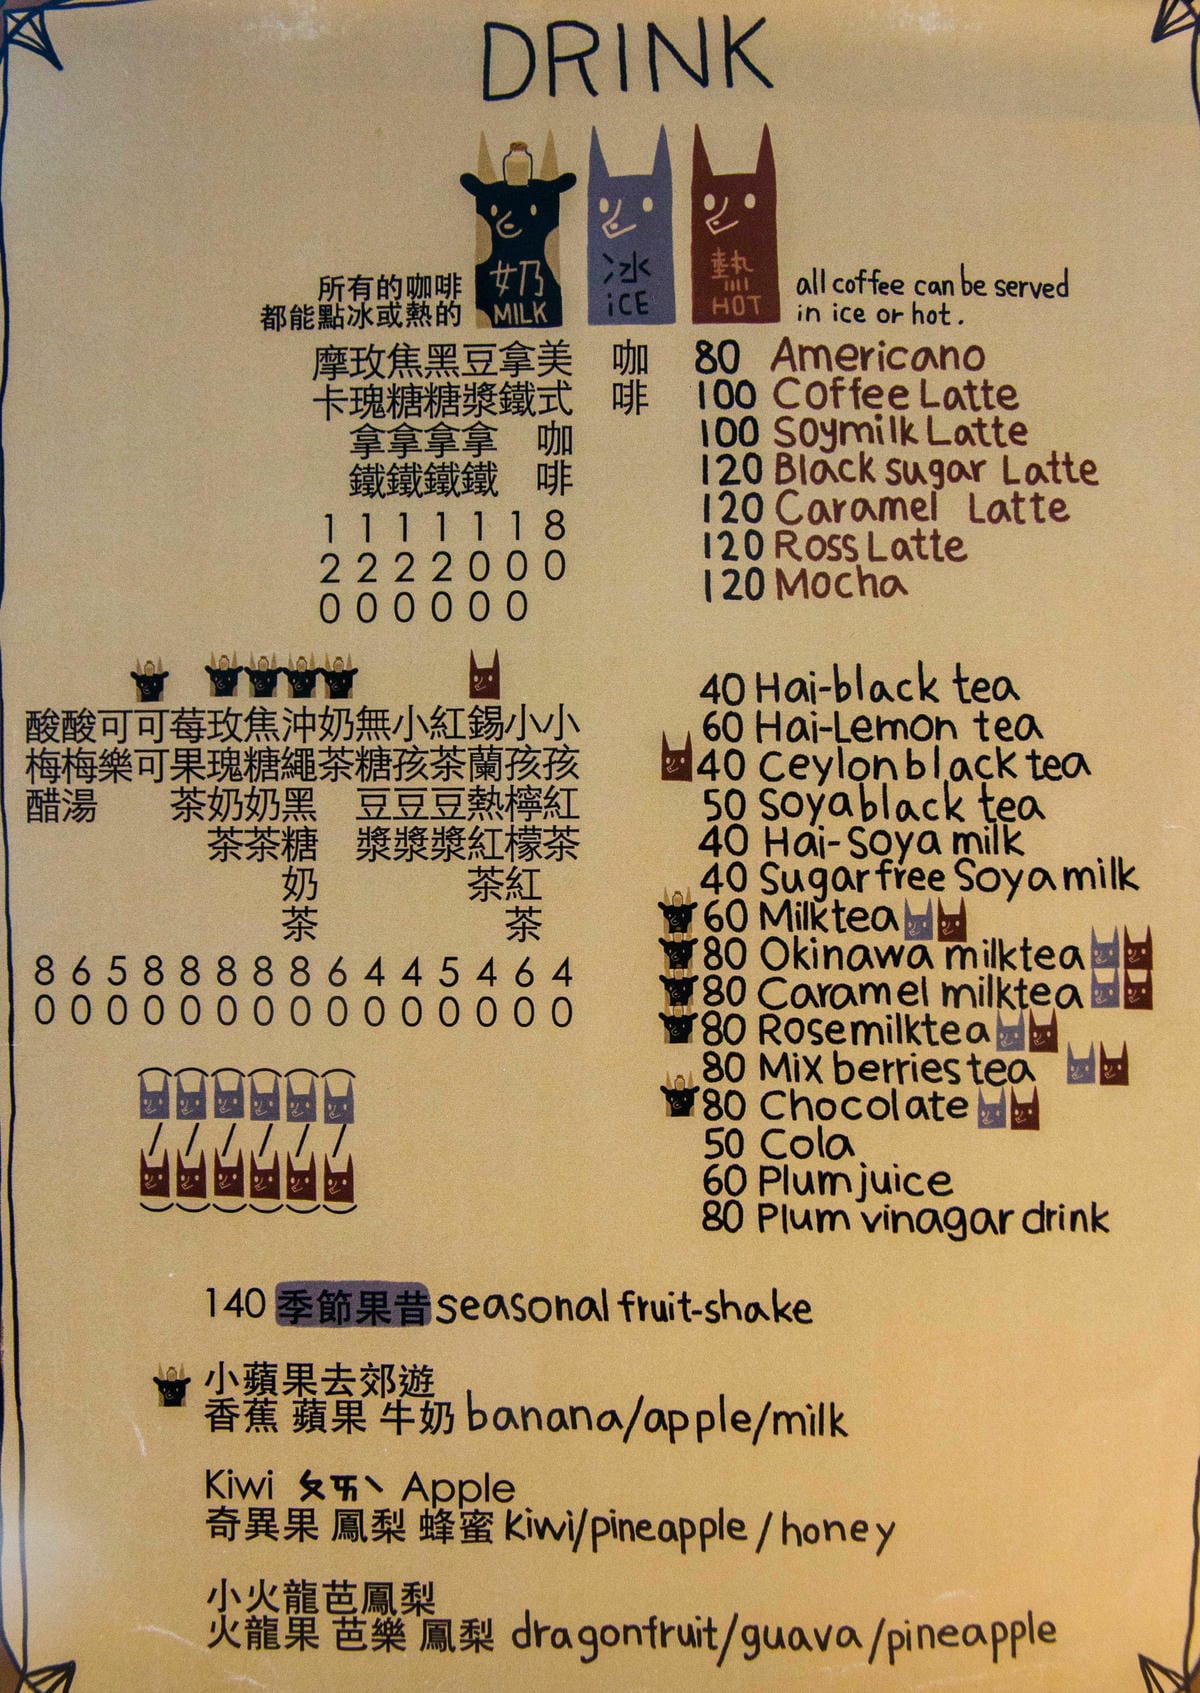 DRINK
奶
MILK
冰
iCE
熱
HOT
所有的咖啡
都能點冰或熱的
all coffee can be served
in ice or hot.
咖啡
美式咖啡 80
拿鐵 100
豆漿拿鐵 100
黑糖拿鐵 120
焦糖拿鐵 120
玫瑰拿鐵 120
摩卡 120
80 Americano
100 Coffee Latte
100 Soymilk Latte
120 Black sugar Latte
120 Caramel Latte
120 Ross Latte
120 Mocha
小孩紅茶 40
小孩檸檬紅茶 60
錫蘭熱紅茶 40
紅茶豆漿 50
小孩豆漿 40
無糖豆漿 40
奶茶 60
沖繩黑糖奶茶 80
焦糖奶茶 80
玫瑰奶茶 80
莓果茶 80
可可 80
可樂 50
酸梅湯 60
酸梅醋 80
40 Hai-black tea
60 Hai-Lemon tea
40 Ceylon black tea
50 Soya black tea
40 Hai-Soya milk
40 Sugar free Soya milk
60 Milk tea
80 Okinawa milk tea
80 Caramel milk tea
80 Rose milk tea
80 Mix berries tea
80 Chocolate
50 Cola
60 Plum juice
80 Plum vinagar drink
140 季節果昔 seasonal fruit-shake
小蘋果去郊遊
香蕉 蘋果 牛奶 banana/apple/milk
Kiwi ㄆㄞˋ Apple
奇異果 鳳梨 蜂蜜 kiwi/pineapple/honey
小火龍芭鳳梨
火龍果 芭樂 鳳梨 dragonfruit/guava/pineapple